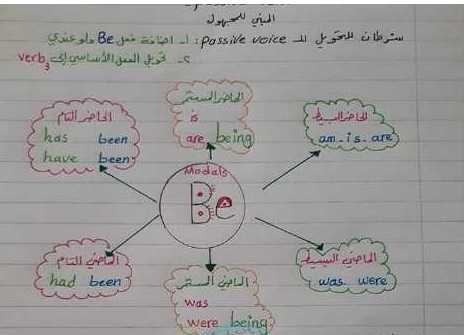 المبني للمجهول
شرطان للتحويل للـ passive voice: 1- إضافة فعل Be ولو عندي
2- تحويل الفعل الأساسي إلى verb3
الحاضر التام
has been
have been
الحاضر المستمر
is
are being
الحاضر البسيط
am - is - are
Modals
Be
الماضي التام
had been
الماضي المستمر
was
were being
الماضي البسيط
was were